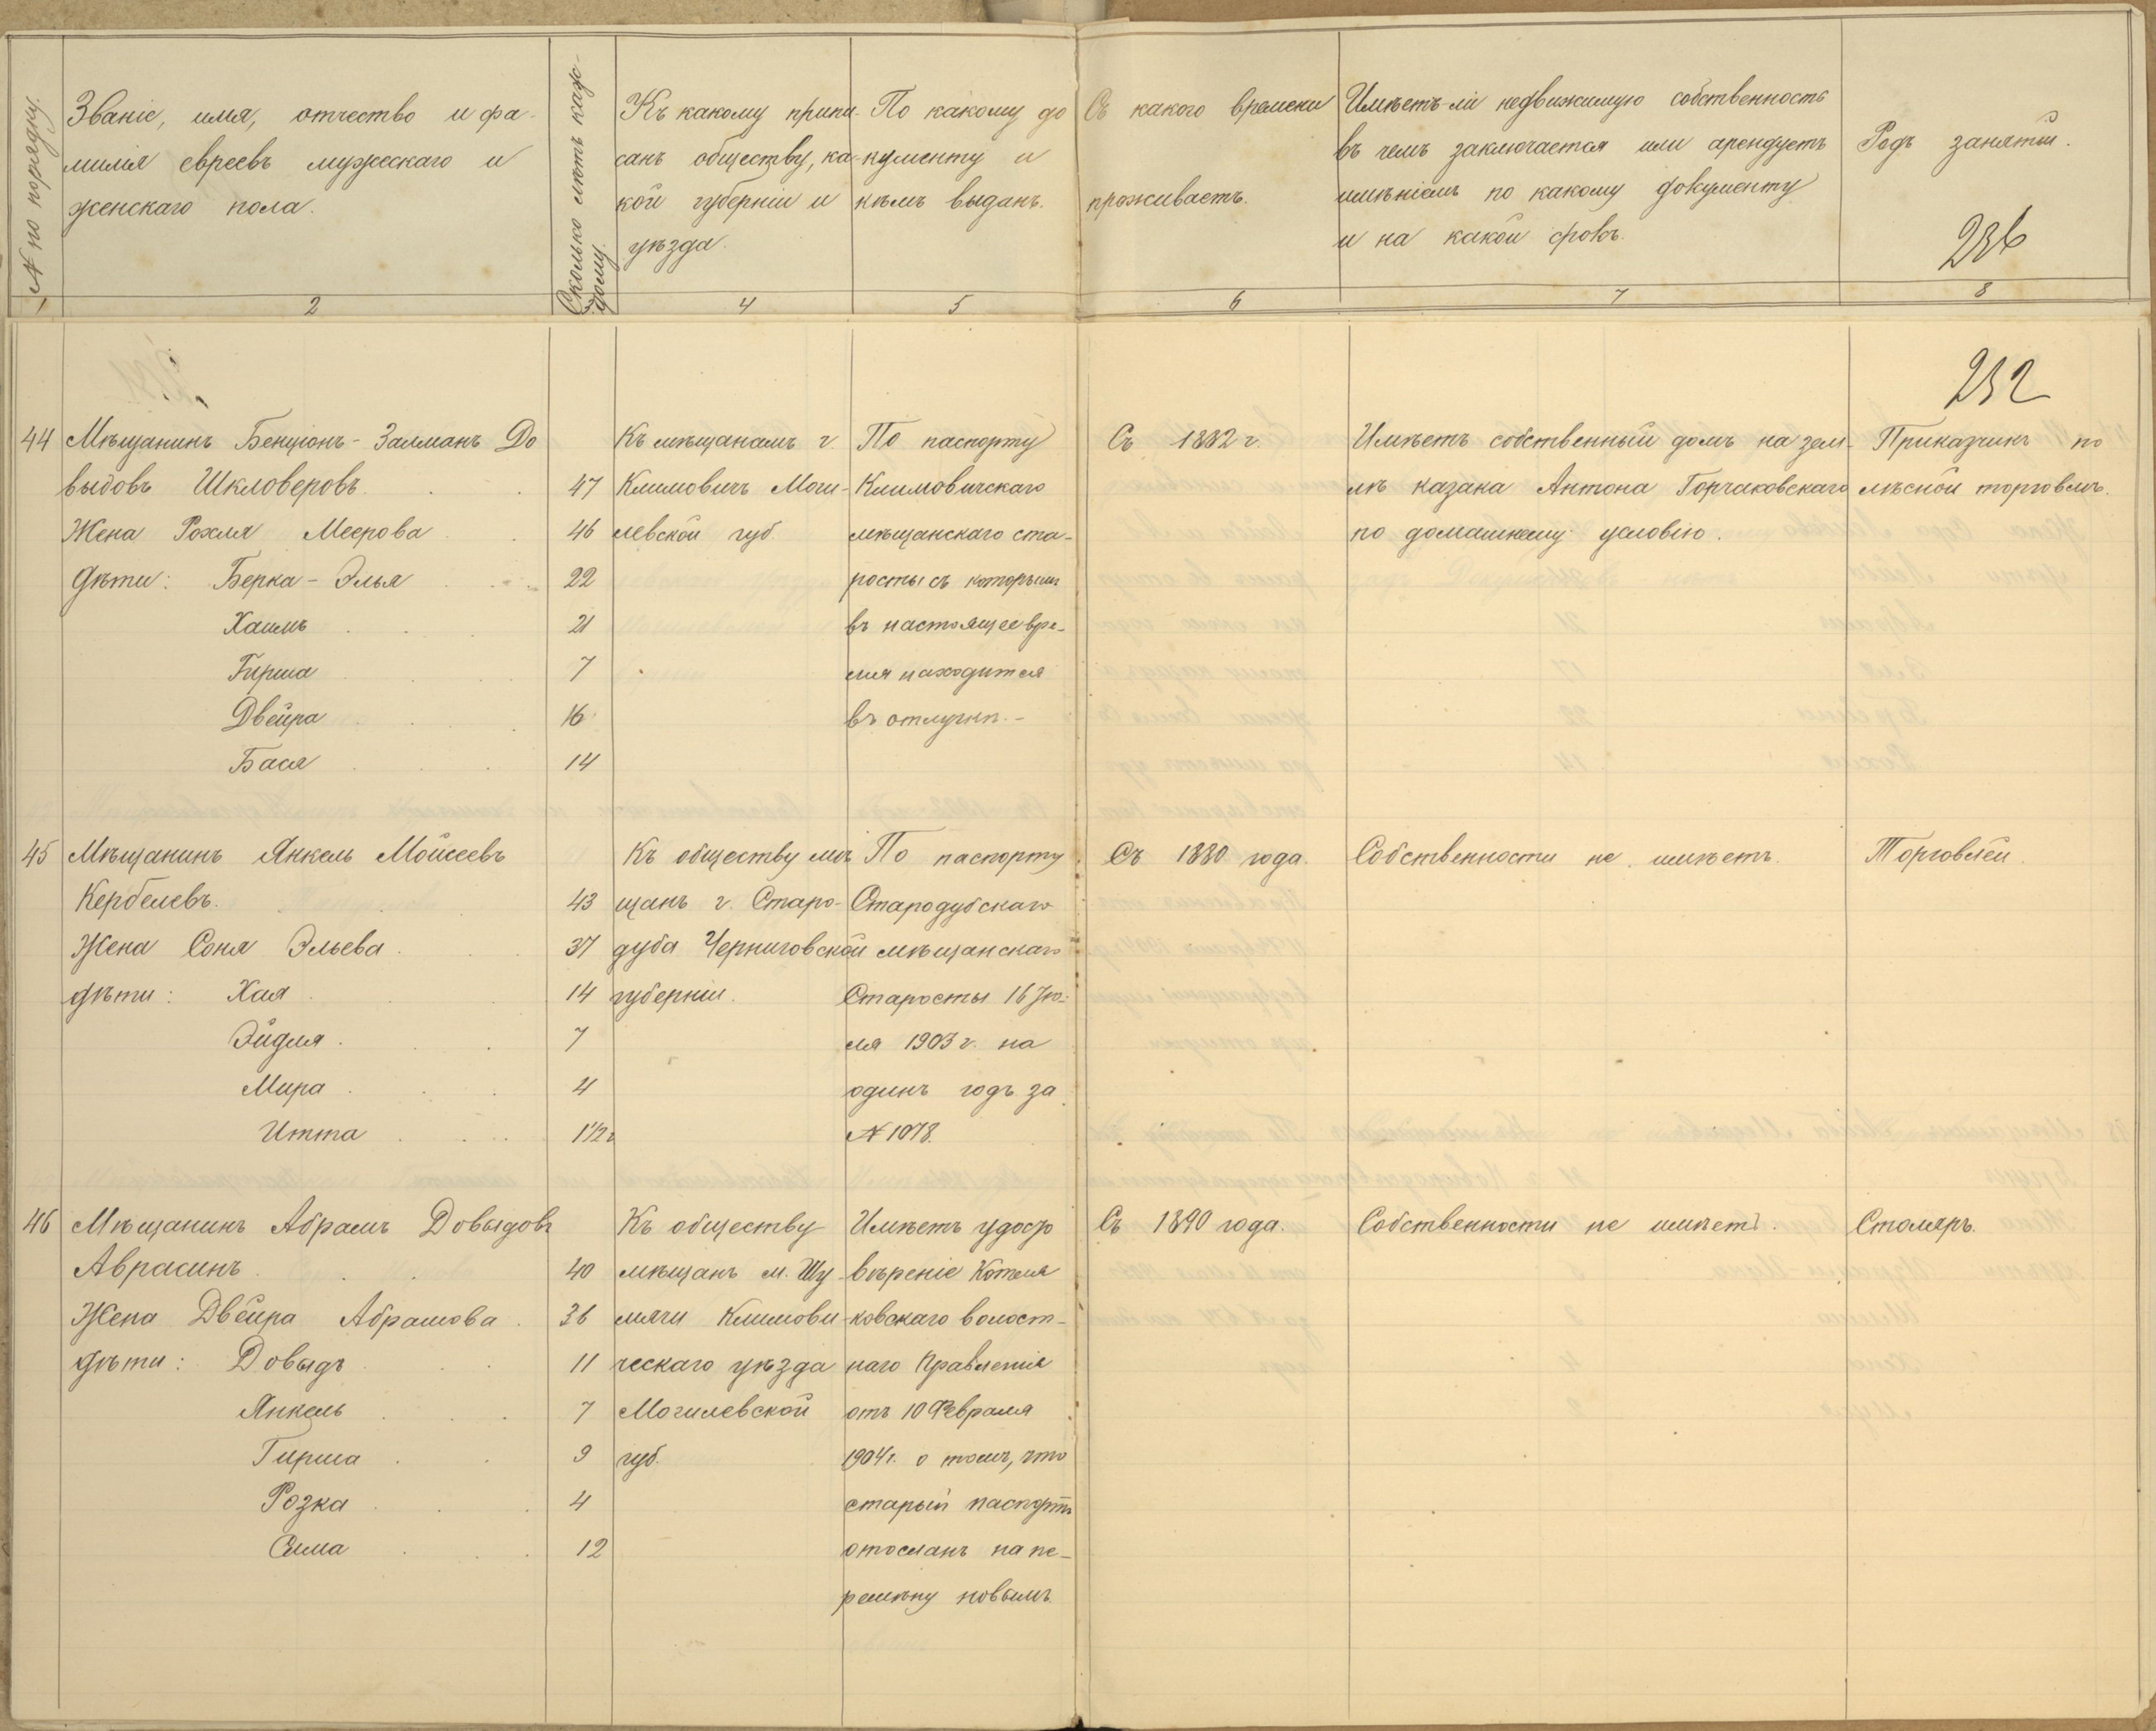 № по порядку.
Званіе, имя, отчество и фа-
милія евреевъ мужескаго и
женскаго пола.
Сколько лѣтъ каж-
дому.
Къ какому припи-
санъ обществу, ка-
кой губерніи и
уѣзда.
По какому до
кументу и
кѣмъ выданъ.
Съ какого времени
проживаетъ.
Имѣетъ-ли недвижимую собственность
въ чемъ заключается или арендуетъ
имѣніемъ по какому документу
и на какой срокъ.
Родъ занятій.
236
1 2 3 4 5 6 7 8
232
44 Мѣщанинъ Бенціонъ-Залманъ До
выдовъ Шкловеровъ. 47
Жена Рохля Меерова 46
Дѣти: Берка-Элья 22
Хаимъ 21
Гирша 7
Двейра 16
Бася 14
Къ мѣщанамъ г.
Климовичъ Моги-
левской губ.
По паспорту
Климовичскаго
мѣщанскаго ста-
росты съ которымъ
въ настоящее вре-
мя находится
въ отлучкѣ.-
Съ 1882 г.
Имѣетъ собственный домъ на зем-
лѣ казака Антона Горчаковскаго
по домашнему условію.
Приказчикъ по
лѣсной торговлѣ.
45 Мѣщанинъ Янкель Мойсеевъ
Кербелевъ. 43
Жена Соня Эльева 37
дѣти: Хая 14
Эйдля 7
Мира 4
Итта 1 1/2 г
Къ обществу мѣ
щанъ г. Старо-
дуба Черниговской
губерніи.
По паспорту
Стародубскаго
мѣщанскаго
Старосты 16 Ію-
ля 1903 г. на
одинъ годъ за
№ 1078.
Съ 1880 года.
Собственности не имѣетъ.
Торговлей.
46 Мѣщанинъ Абрамъ Довыдовъ
Аврасинъ 40
Жена Двейра Абрамова 36
дѣти: Довыдъ 11
Янкель 7
Гирша 9
Розка 4
Сима 12
Къ обществу
мѣщанъ м. Шу-
мячи Климови-
ческаго уѣзда
Могилевской
губ.
Имѣетъ удосто
вѣреніе Котля
ковскаго волост-
наго Правленія
отъ 10 Февраля
1904 г. о томъ, что
старый паспортъ
отосланъ на пе-
ремѣну новымъ.
Съ 1890 года.
Собственности не имѣетъ.
Столяръ.